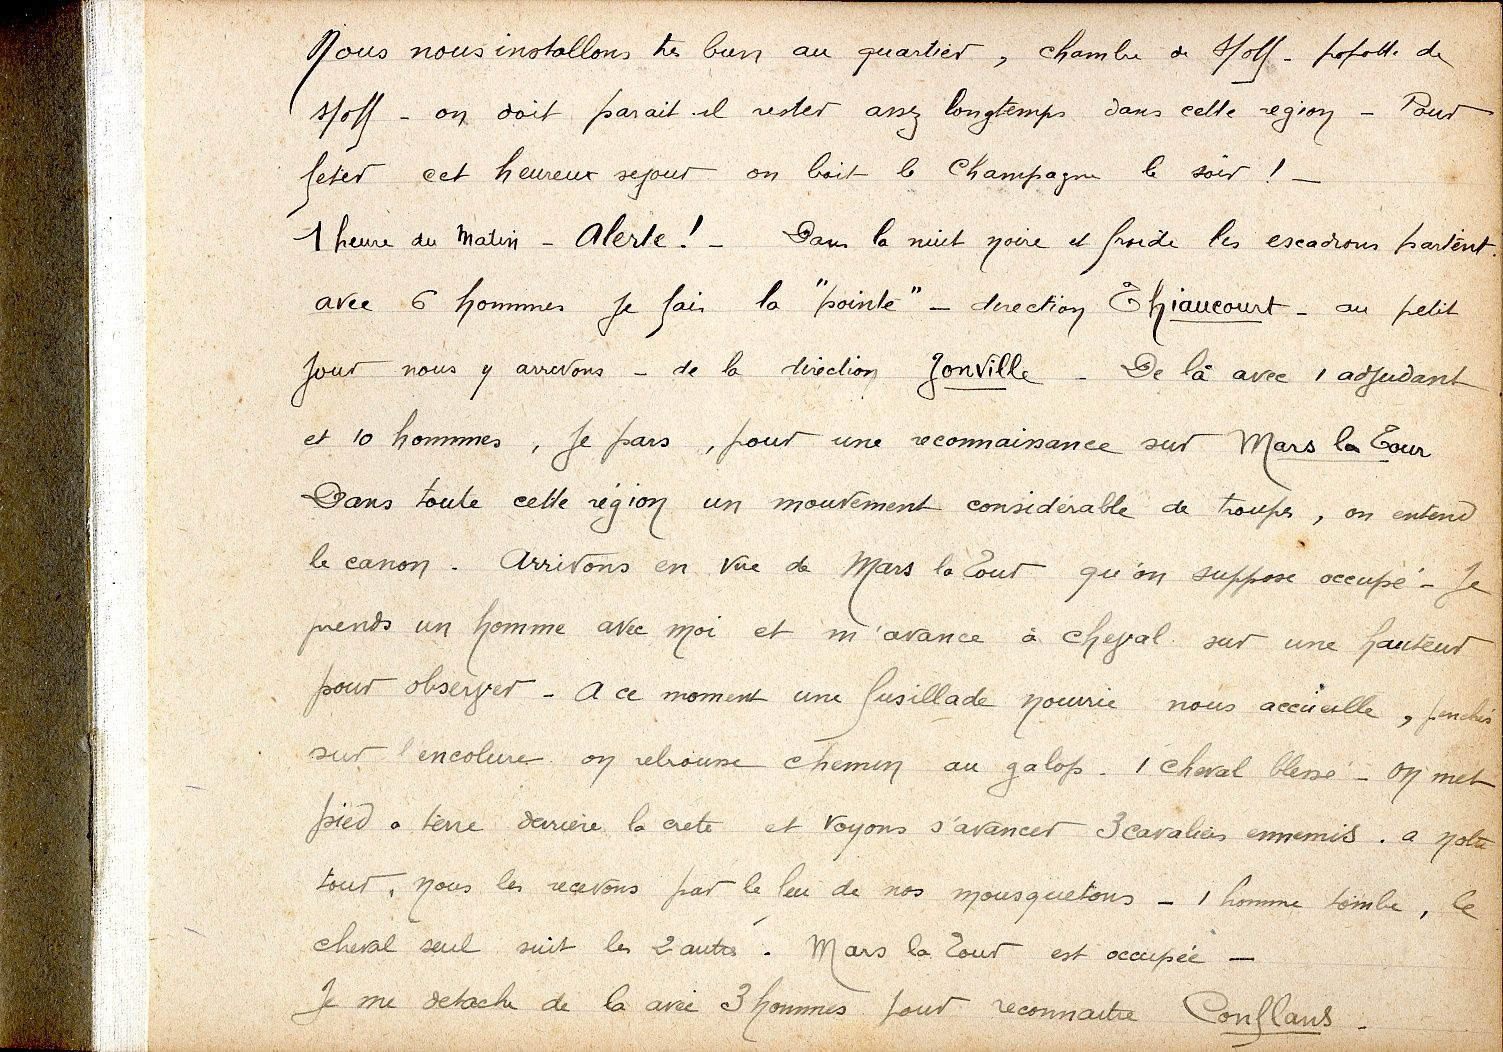 Nous nous installons très bien au quartier, chambre de s/off - popotte de
s/off - on doit parait-il rester assez longtemps dans cette région - Pour
feter cet heureux sejour on boit le Champagne le soir ! -
1 heure du Matin - Alerte ! - Dans la nuit noire et froide les escadrons partent.
avec 6 hommes je fais la "pointe" - direction Thiaucourt - au petit
jour nous y arrivons - de la direction Jonville - De là avec 1 adjudant
et 10 hommes, je pars, pour une reconnaissance sur Mars la Tour
Dans toute cette région un mouvement considérable de troupes, on entend
le canon. Arrivons en vue de Mars la Tour qu'on suppose occupé - Je
prends un homme avec moi et m'avance à cheval sur une hauteur
pour observer - A ce moment une fusillade nourrie nous accueille, penchés
sur l'encolure on rebrousse chemin au galop. 1 cheval blessé - On met
pied a terre derrière la crete et voyons s'avancer 3 cavaliers ennemis. a notre
tour, nous les recevons par le feu de nos mousquetons - 1 homme tombe, le
cheval seul suit les 2 autres. Mars la Tour est occupée -
Je me detache de la avec 3 hommes pour reconnaitre Conflans -